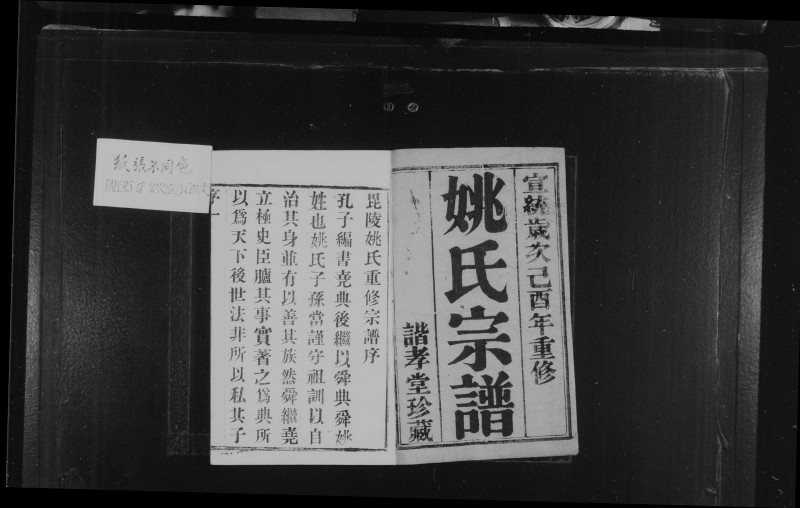 宣統歲次己酉年重修
姚氏宗譜
諧孝堂珍藏
毘陵姚氏重修宗譜序
孔子編書堯典後繼以舜典舜姚
姓也姚氏子孫當謹守祖訓以自
治其身並有以善其族然舜繼堯
立極史臣臚其事實著之爲典所
以爲天下後世法非所以私其子
序一
紙張不同色
PAPERS OF VARIOUS COLOR